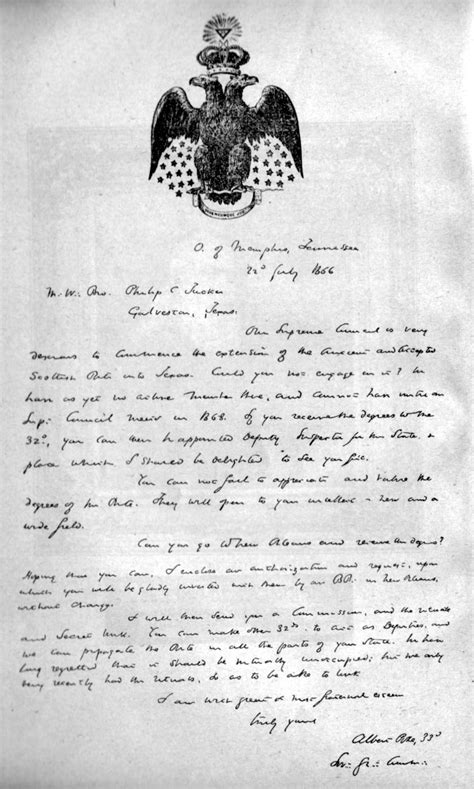 O. of Memphis, Tennessee
22d July 1866
M. W. Bro. Philip C Tucker
Galveston, Texas:
Our Supreme Council is very
desirous to commence the extension of the Ancient and Accepted
Scottish Rite into Texas. Could you not engage in it? We
have as yet no active Member there, and cannot have until
Sup∴ Council meets in 1868. If you receive the degrees to the
32°, you can then be appointed Deputy Inspector for the State, a
place which I should be delighted to see you fill.
You can not fail to appreciate and value the
degrees of the Rite. They will open to you Masonry - new and a
wide field.
Can you go to New Orleans and receive the degrees?
Hoping that you can, I enclose an authorization and request, upon
which you will be gladly invested with them by our BB∴ in New Orleans,
without charge.
I will then send you a Commission, and the rituals
and Secret Work. You can make other 32ds to act as Deputies, and
we can propagate the Rite in all the parts of your State. We have
long regretted that it should be mutually unoccupied; but we only
very recently had the rituals, so as to be able to work
I am with great & most fraternal esteem
truly yours
Albert Pike, 33d
Sov∴ Gr∴ Comm∴